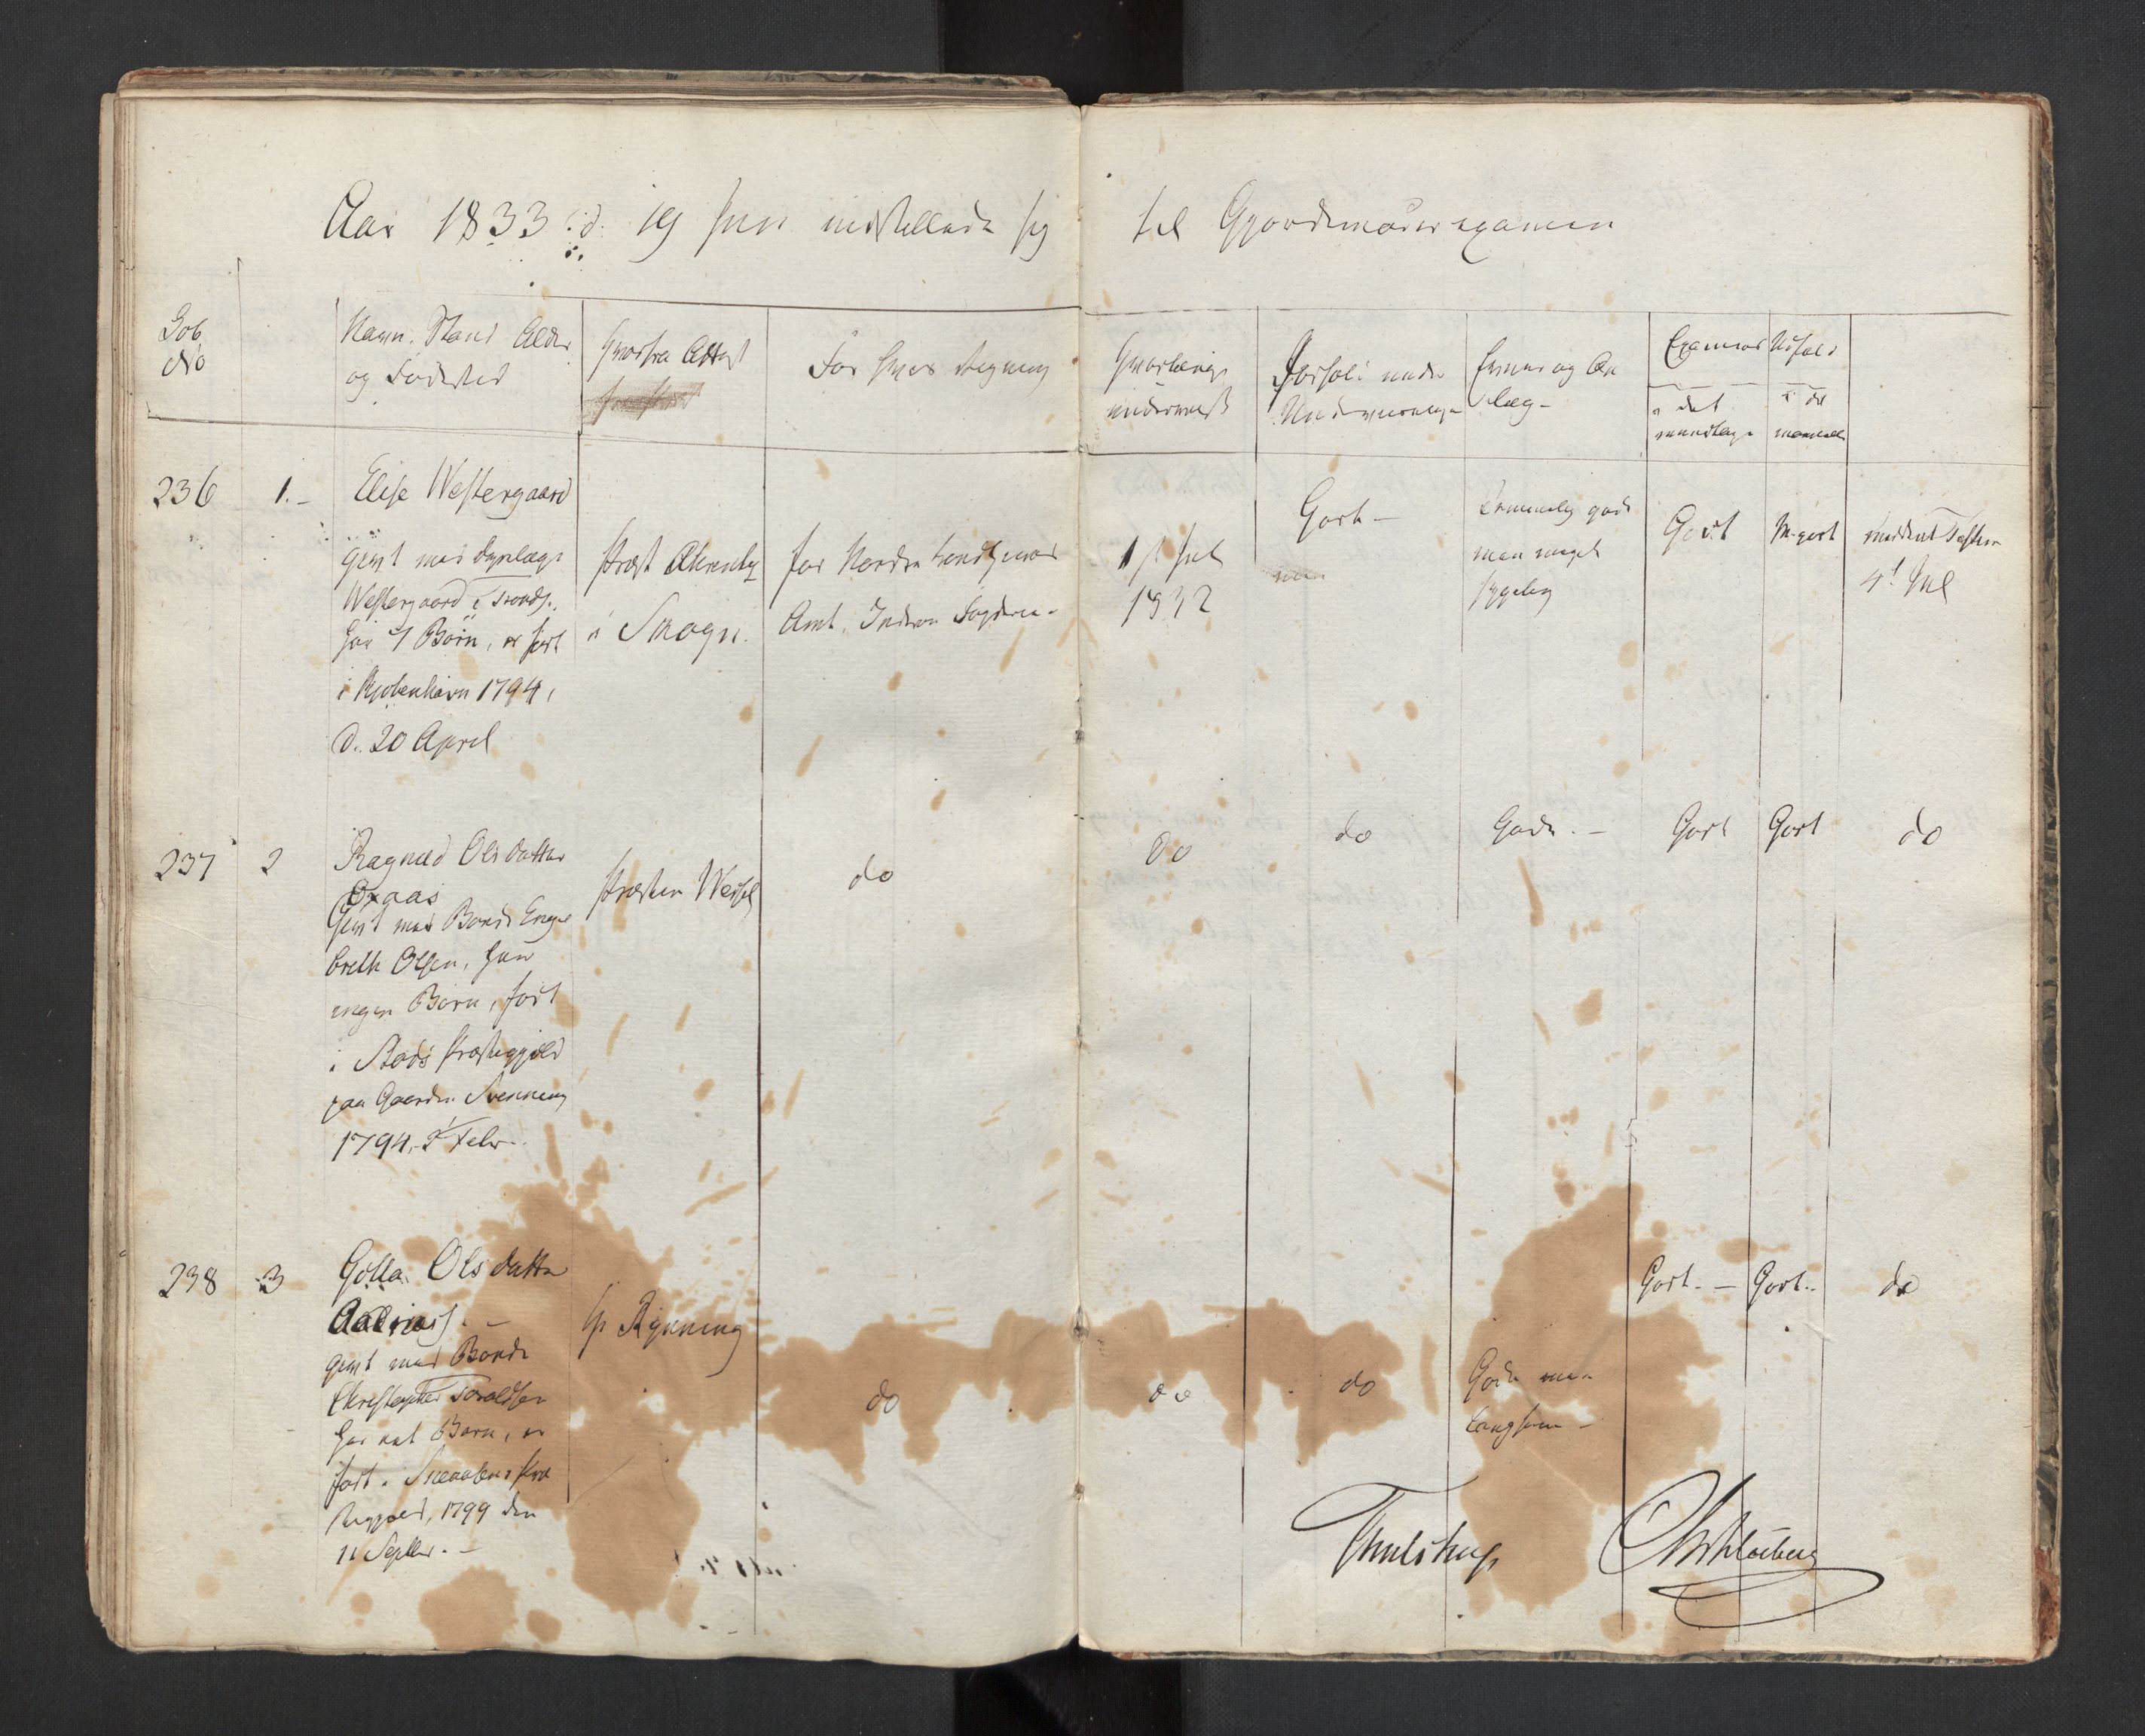 Aar 1833 d. 19 Juni indstillede sig til Gjordemoderexamen
Lob
No
Navn, Stand Alder
og Fødested
Hvorfra Attest
For hvis Regning
Hvorlænge
underviist
Forhold under
Underviisningen
Evner og An
læg-
Examens Udfald
i det
mundtlige
i det
236 1.- Elise Westergaard
givt med Dyrlæge
Westergaard i Trondhj.
har 4 Børn, er født
i Kjøbenhavn 1794,
d. 20 April
Præst
i Skogn.
for Nordre Trondhjems
Amt, Inderøens Fogderie-
1 Juli
1832
Godt -
Temmelig gode
men meget
sygelig
Godt
M. godt
4d Jul
237 2 Ragnild Olsdatter
Oxaas
Givt med Bonde Enge
breth Olsen, har
ingen Børn, født
i Stods Præstegjeld
paa Gaarden Svenning
1794, 2 Febr.
Præsten Wessel
do
do
do
Gode. -
Godt
Godt
do
238 3 Golla Olsdatter
givt med Bonde
Christopher Toraldsen
har eet Barn, er
født i Snaasens Præ
stegjeld, 1799 den
11 Septbr. -
Hr Rynning
do
do
do
Gode men
langsom -
Godt. -
Godt.
do
Thulstrup